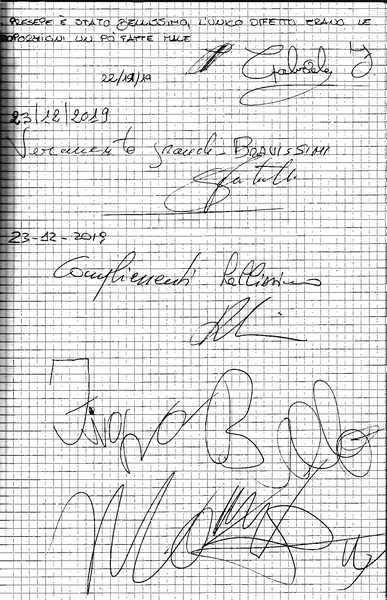 PRESEPE È STATO BELLISSIMO, L'UNICO DIFETTO ERANO LE
PROPORZIONI UN PO' FATTE MALE
Gabriele J
22/12/19
23/12/2019
Veramente grandi - BRAVISSIMI
23-12-2019
Complimenti bellissimo
Troppo Bello